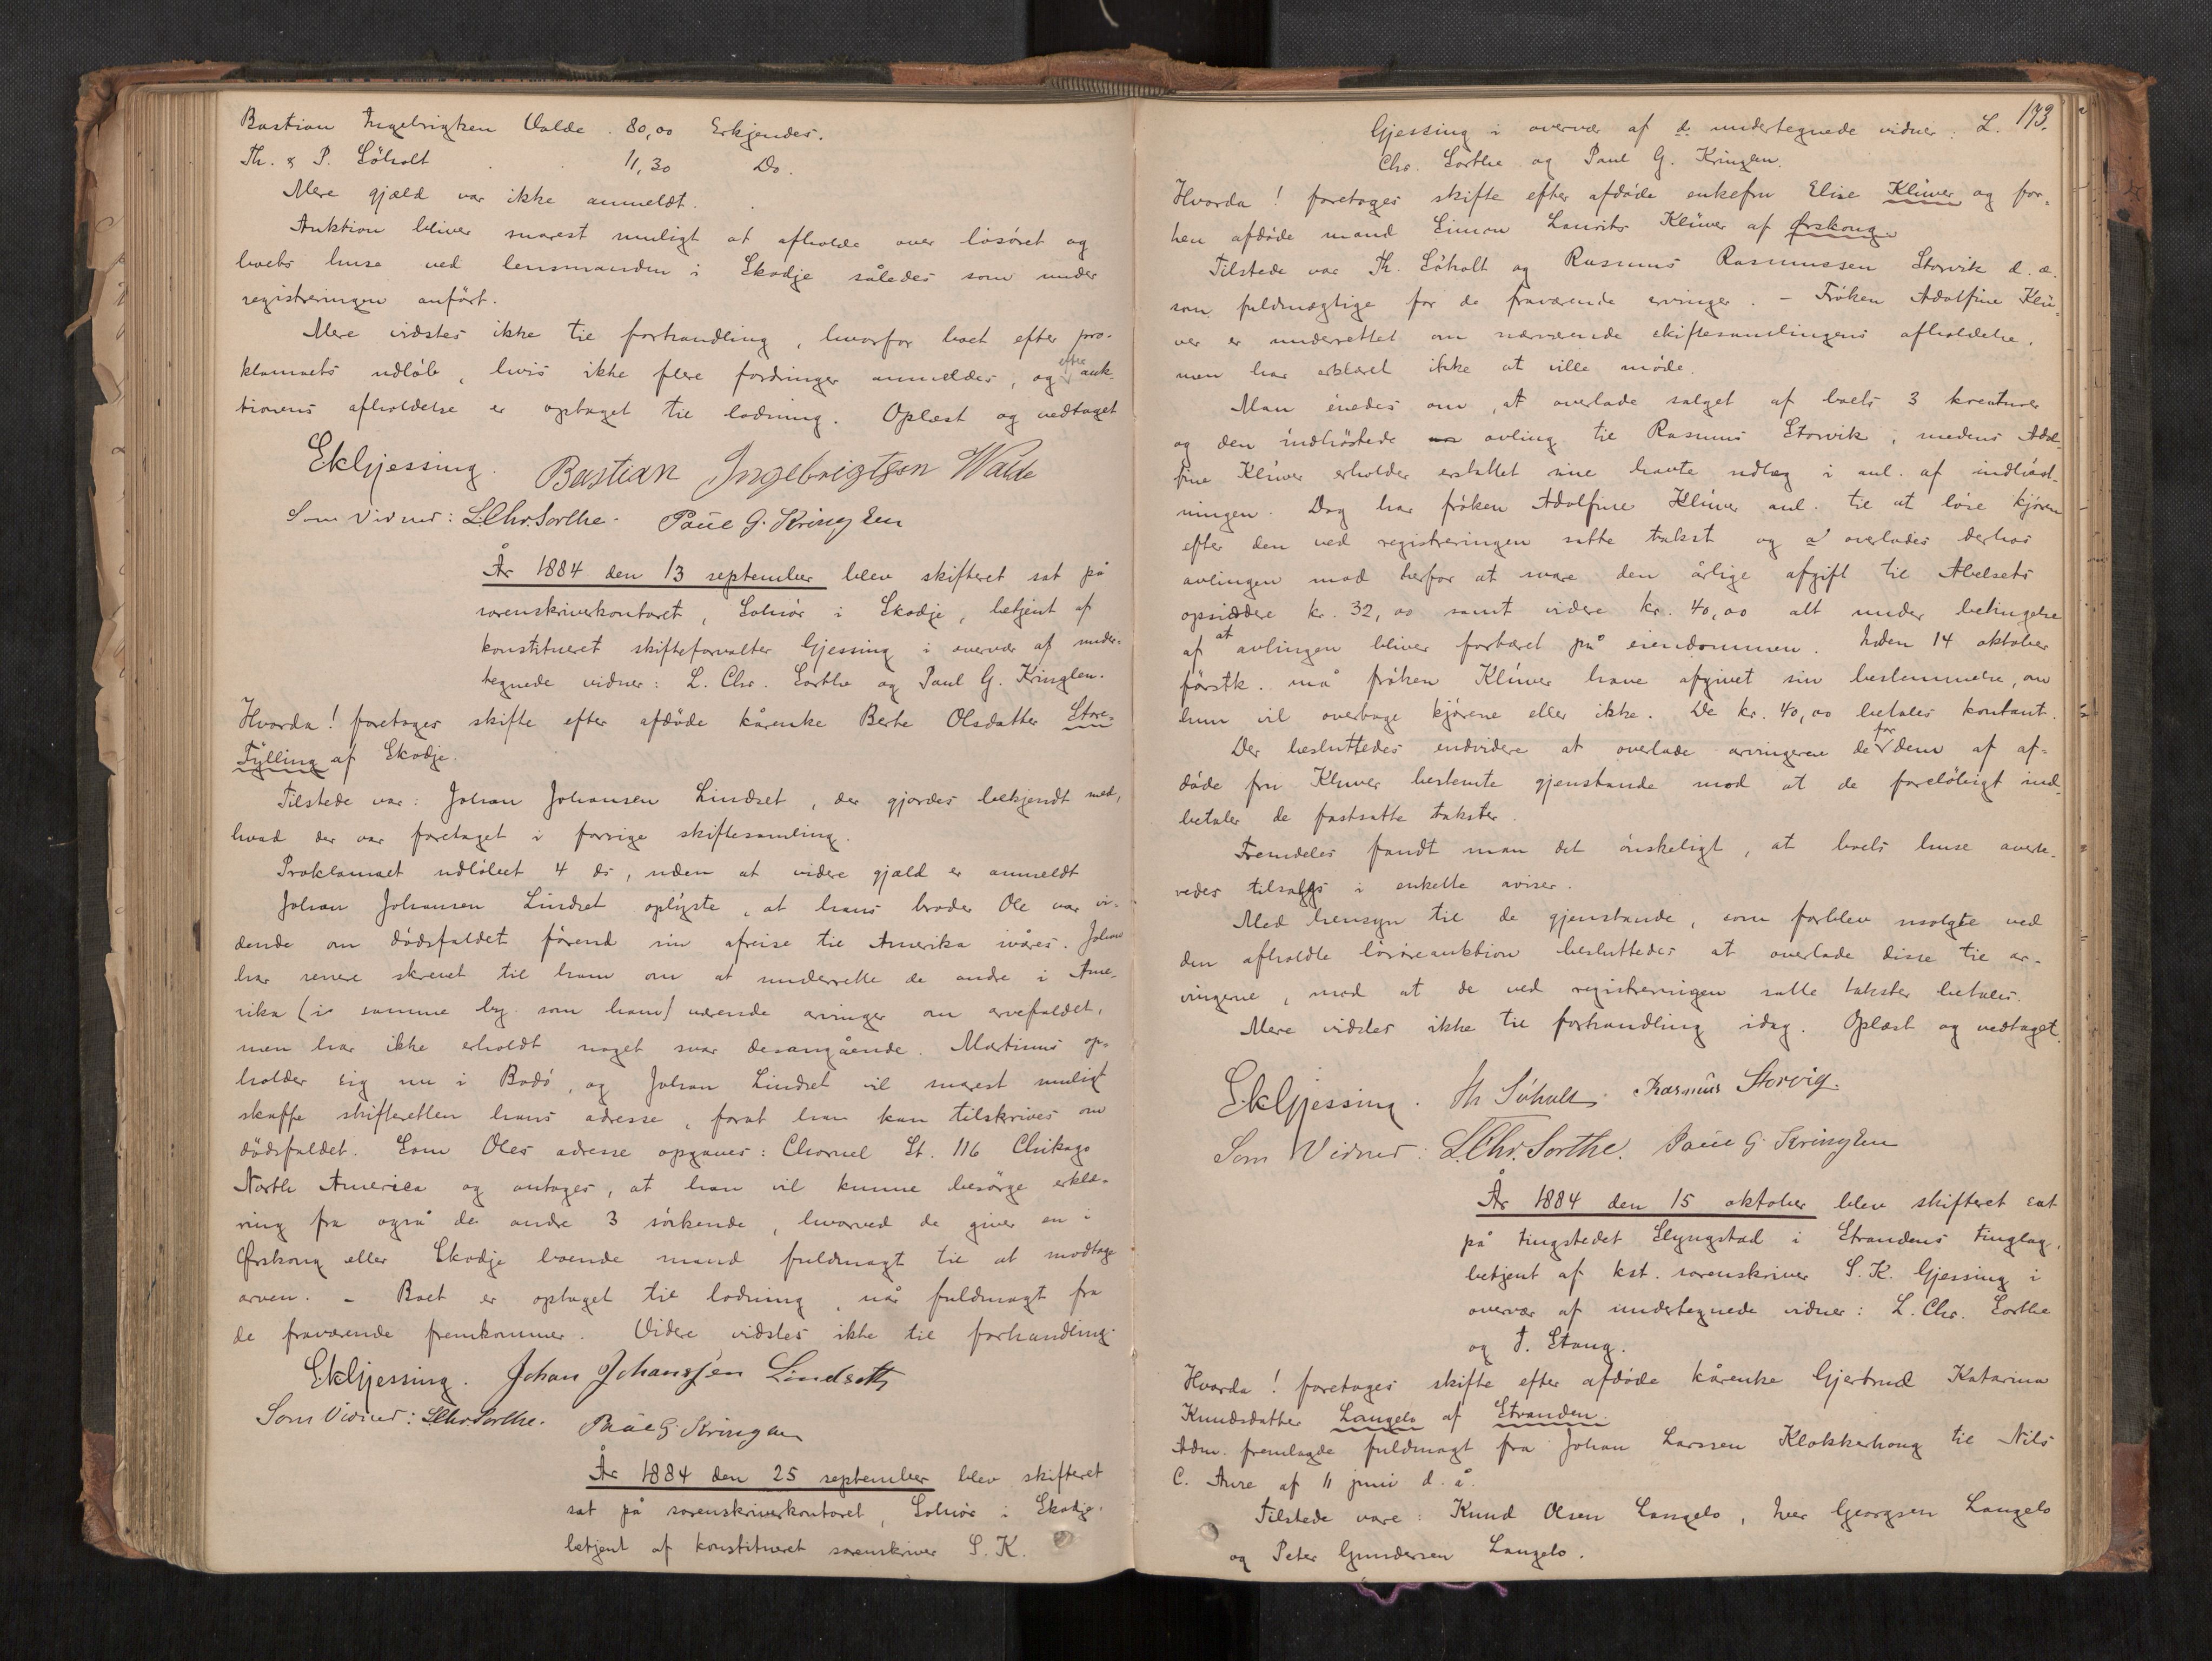 Bastian Ingebrigtsen Valde . 80,00 Erkjendes.
Th. & P. Söholt . . 11,30 Do.
Mere gjæld var ikke anmeldt.
Auktion bliver snarest muligt at afholde over lösöret og
boets huse ved lensmanden i Skodje således som under
registreringen anfört.
Mere vidstes ikke til forhandling, hvorfor boet efter pro-
klamaets udlöb, hvis ikke flere fordringer anmeldes, og efter auk-
tionens afholdelse er optaget til lodning. Oplæst og vedtaget
SkGjessing. Bastian Ingebrigtsen Walde
Som Vidner: L.Chr.Sorthe. Paul G. Kringlen
År 1884 den 13 september blev skifteret sat på
sorenskriverkontoret, Solnör i Skodje, betjent af
konstitueret skifteforvalter Gjessing i overvær af under-
tegnede vidner: L. Chr. Sorthe og Paul G. Kringlen.
Hvorda! foretages skifte efter afdöde kårenke Berte Olsdatter Store-
Fylling af Skodje.
Tilstede var: Johan Johansen Lindset, der gjordes bekjendt med,
hvad der var foretaget i forrige skiftesamling.
Proklamaet udlöbet 4 ds, uden at videre gjæld er anmeldt
Johan Johansen Lindset oplyste, at hans broder Ole var vi-
dende om dödsfaldet förend sin afreise til Amerika ivåres. Johan
har senere skrevet til ham om at underrette de andre i Ame-
rika (i samme by som ham) værende arvinger om arvefaldet,
men har ikke erholdt noget svar desangående. Martinus op-
holder sig nu i Bodö, og Johan Lindset vil snarest muligt
skaffe skifteretten hans adresse, forat han kan tilskrives om
dödsfaldet. Som Oles adresse opgaves: Chornel St. 116 Chikago
North America og antages, at han vil kunne besörge erklæ-
ring fra også de andre 3 söskende, hvorved de giver en i
Ørskoug eller Skodje boende mand fuldmagt til at modtage
arven. - Boet er optaget til lodning, når fuldmagt fra
de fraværende fremkommer. Videre vidstes ikke til forhandling.
SkGjessing. Johan Johanssen Lindseth
Som Vidner: L.Chr.Sorthe. Paul G. Kringlen
År 1884 den 25 september blev skifteret
sat på sorenskriverkontoret, Solnör i Skodje,
betjent af konstitueret sorenskriver S. K.
173.
Gjessing i overvær af d. undertegnede vidner: L.
Chr. Sorthe og Paul G. Kringlen.
Hvorda! foretages skifte efter afdöde enkefru Elise Klüver og for-
hen afdöde mand Simon Laurits Klüver af Ørskoug.
Tilstede var Th. Söholt og Rasmus Rasmussen Storvik d. æ.
som fuldmægtige for de fraværende arvinger. - Fröken Adolfine Klü-
ver er underrettet om nærværende skiftesamlingens afholdelse,
men har erklæret ikke at ville möde.
Man enedes om, at overlade salget af boets 3 kreaturer
og den indhöstede avling til Rasmus Storvik, medens Adol-
fine Klüver erholder erstattet sine havte udlæg i anl. af indhöst-
ningen. Dog har fröken Adolfine Klüver anl. til at löse kjören
efter den ved registreringen satte takst og overlades derhos
avlingen mod herfor at svare den årlige afgift til Abelsets
opsiddere kr. 32,00 samt videre kr. 40,00 alt under betingelse
af at avlingen bliver fortæret på eiendommen. Inden 14 oktober
förstk. må fröken Klüver have afgivet sin bestemmelse, om
hun vil overtage kjörene eller ikke. De kr. 40,00 betales kontant.
Der besluttedes endvidere at overlade arvingerne de for dem af af-
döde fru Kluver bestemte gjenstande mod at de foreløbigt ind-
betaler de fastsatte takster.
Fremdeles fandt man det önskeligt, at boets huse averte-
redes tilsalgs i enkelte aviser.
Med hensyn til de gjenstande, som forblev usolgte ved
den afholdte lösöreauktion besluttedes at overlade disse til ar-
vingerne, mod at de ved registreringen satte takster betales.
Mere vidstes ikke til forhandling idag. Oplæst og vedtaget.
SkGjessing. Th Söholt. Rasmus Storvig.
Som Vidner: L.Chr.Sorthe. Paul G. Kringlen
År 1884 den 15 oktober blev skifteret sat
på tingstedet Slyngstad i Strandens tinglag,
betjent af kst. sorenskriver S. K. Gjessing i
overvær af undertegnede vidner: L. Chr. Sorthe
og T. Stang.
Hvorda! foretages skifte efter afdöde kårenke Gjertrud Katarina
Knudsdatter Langelo af Stranden.
Adm. fremlagde fuldmagt fra Johan Larssen Klokkerhoug til Nils
C. Aure af 11 juni d. å.
Tilstede vare: Knud Olsen Langelo, Iver Georgsen Langelo
og Peter Gundersen Langelo.